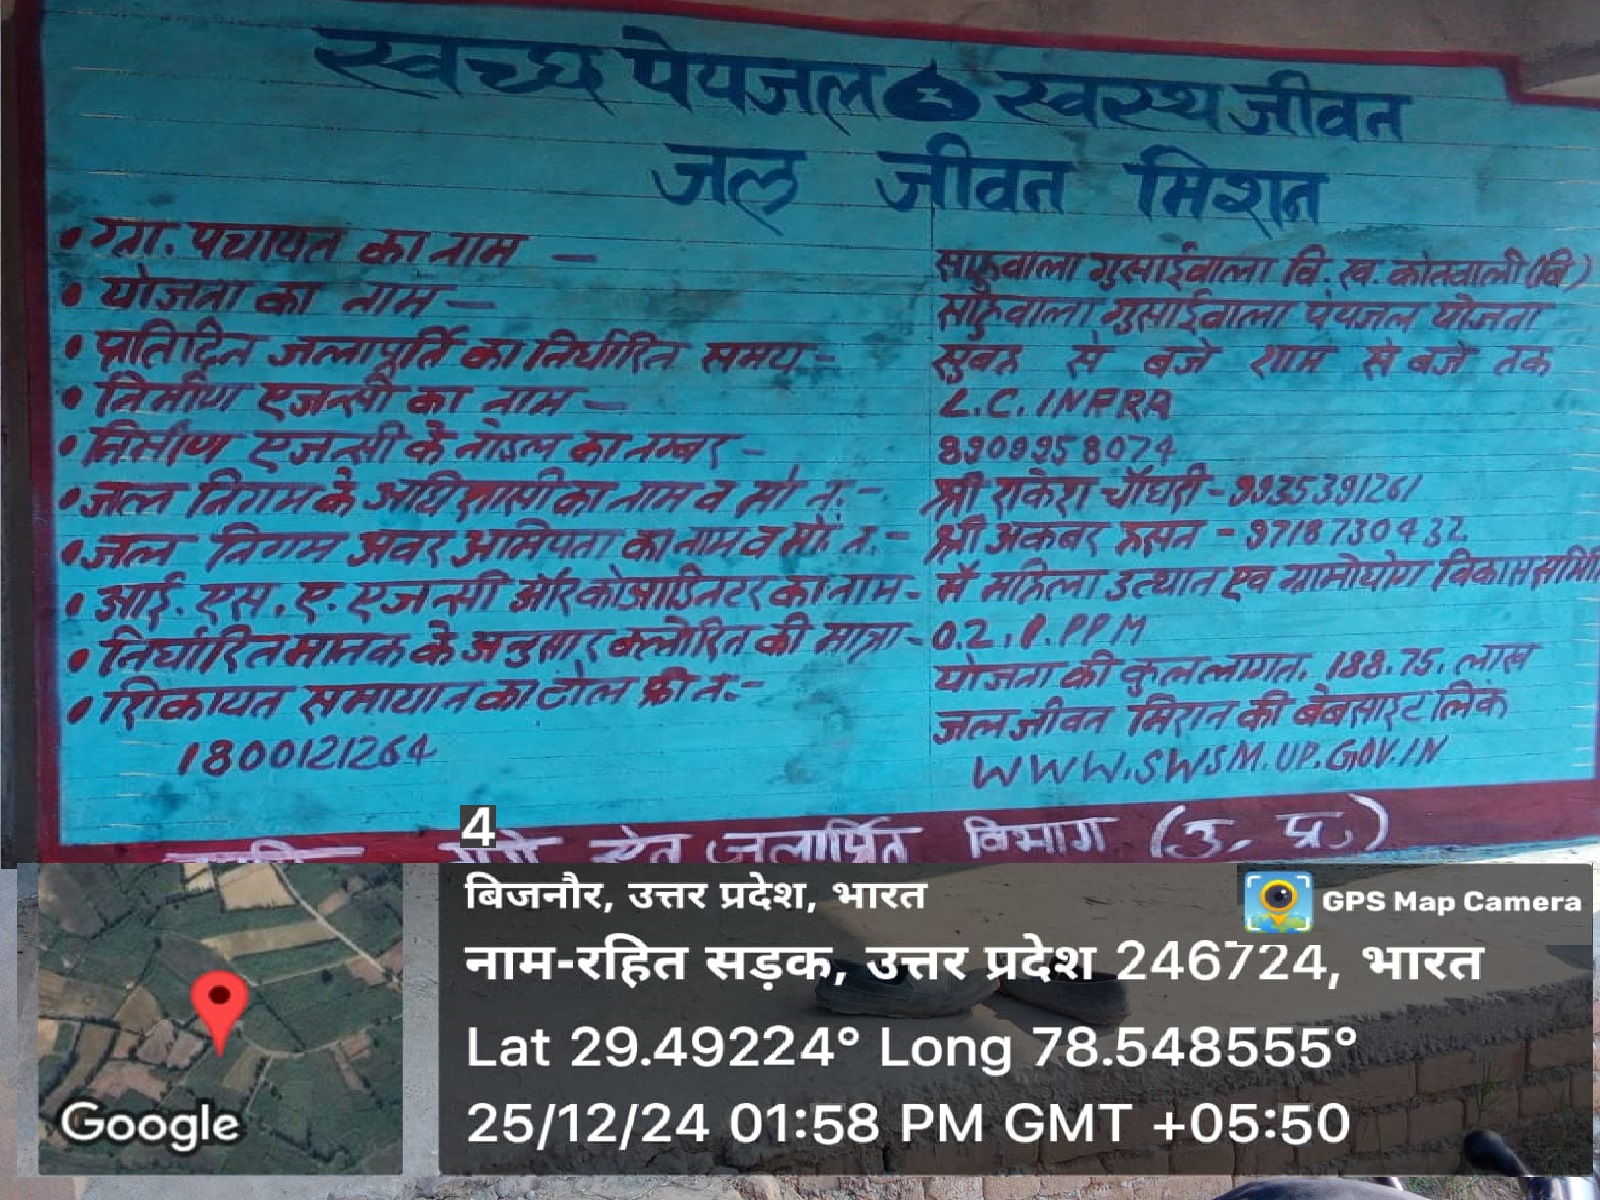 स्वच्छ पेयजल स्वस्थ जीवन
जल जीवन मिशन
• ग्रा. पंचायत का नाम — साहुवाला गुसाईवाला वि. ख. कोतवाली (बि)
• योजना का नाम — साहुवाला गुसाईवाला पेयजल योजना
• प्रतिदिन जलापूर्ति का निर्धारित समय- सुबह से बजे शाम से बजे तक
• निर्माण एजन्सी का नाम — L.C. INFRA
• निर्माण एजन्सी के नोडल का नम्बर -
• जल निगम के अधिशासी का नाम व मो न.- श्री राकेश चौधरी - 9935391261
• जल निगम अवर अभियंता का नाम व मो न.- श्री अकबर हसन - 9718730432
• आई. एस. ए. एजन्सी और कोआडिनेटर का नाम- मै महिला उत्थान एव ग्रामोधोग विकास समिति
• निर्धारित मानक के अनुसार क्लोरिन की मात्रा - 0.2. PPM
• शिकायत समाधान का टोल फ्री न.-
1800121264
योजना की कुल लागत. 188.75. लाख
जल जीवन मिशन की बेबसाइट लिंक
WWW.SWSM.UP.GOV.IN
जलापूर्ति विभाग (उ. प्र.)
4
बिजनौर, उत्तर प्रदेश, भारत
GPS Map Camera
नाम-रहित सड़क, उत्तर प्रदेश 246724, भारत
Lat 29.49224° Long 78.548555°
25/12/24 01:58 PM GMT +05:50
Google